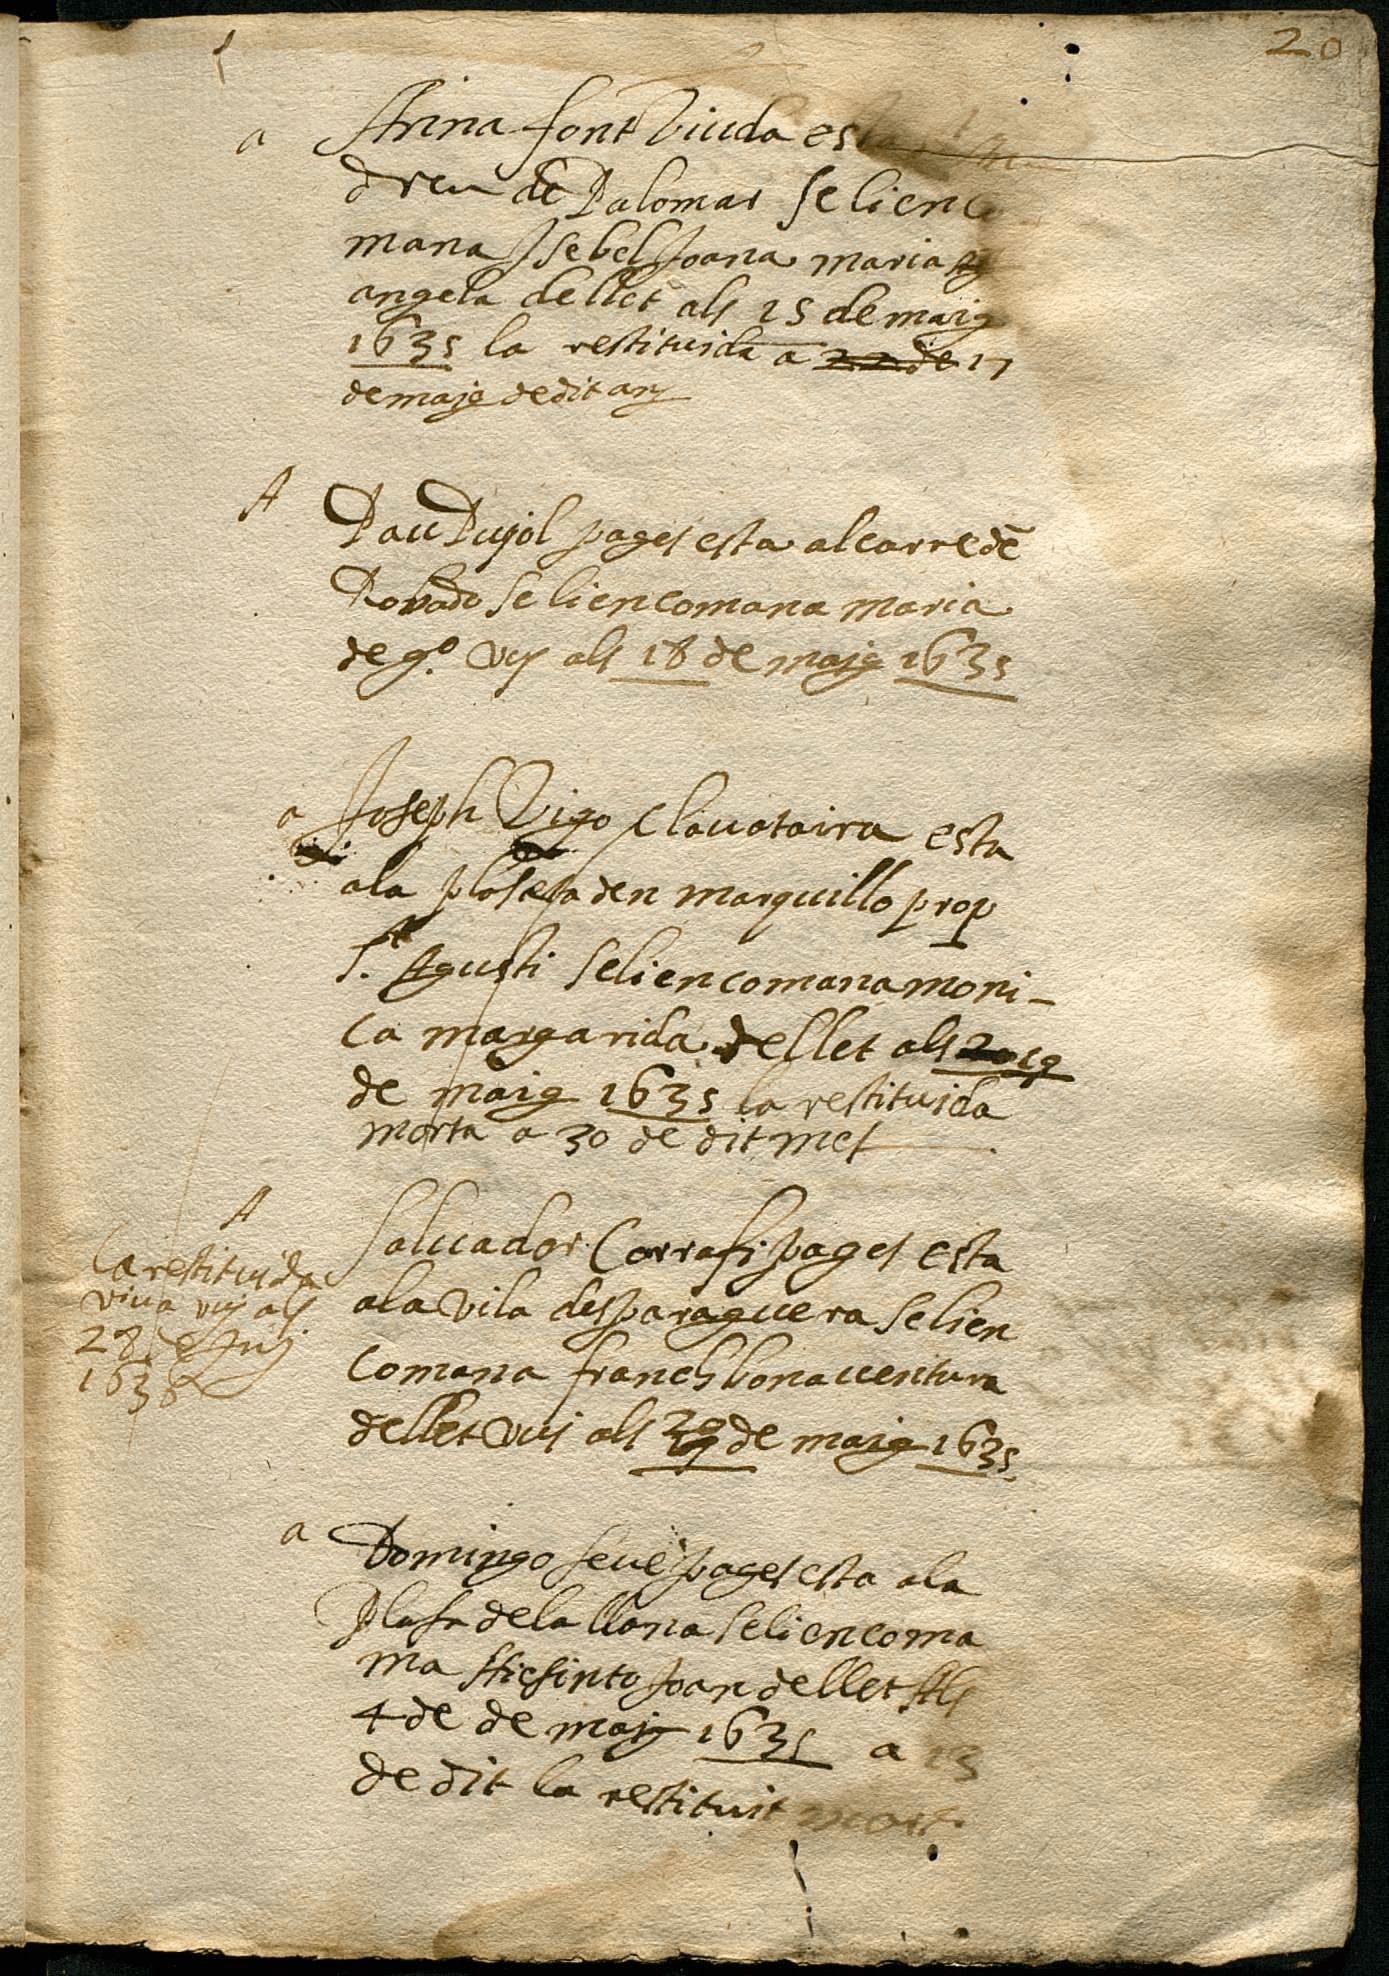 20
a Anna font viuda esta
dreu de Palomar se li enco
mana Isebel Joana maria
angela de llet als 15 de maig
1635 la restituida a 22 de 17
de maig de dit any
A Pau Pujol pages esta al carre dē
Robado se li encomana maria
de g.º vuy als 18 de maig 1635
a Joseph Vigo clauataira esta
a la plaseta den marquillo prop
S.t Agusti se li encomana moni-
ca margarida de llet als 19
de maig 1635 la restituida
morta a 30 de dit mes
A Saluador Corrafi pages esta
a la vila desparaguera se li en
comana franch bonauentura
de llet vui als 29 de maig 1635
la restituida
viua vuy als
28 de Juj
1636
a Domingo seue pages esta a la
plasa de la llana se li encoma
ma Hiesinto Joan de llet Als
4 de de maig 1635 a 13
de dit la restituit mort